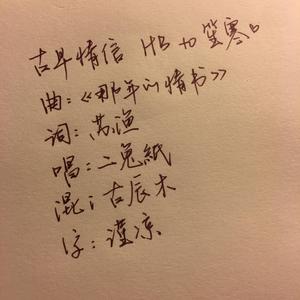 古早情信 HB to 笙寒。
曲:《那年的情书》
词:苏渔
唱:二兔紙
混:古辰木
字:瑾凉